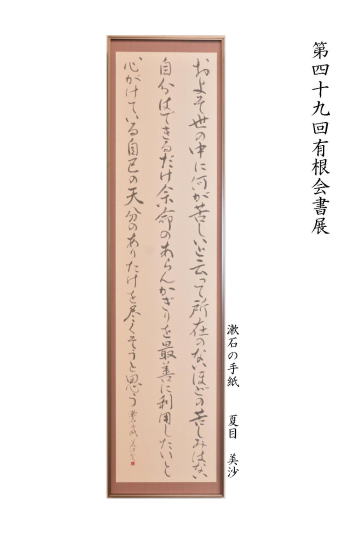 第四十九回有根会書展
漱石の手紙　夏目　美沙
およそ世の中に何が苦しいと云って所在のないほどの苦しみはない
自分はできるだけ余命のあらんかぎりを最善に利用したいと
心がけている自己の天分のありたけを尽くそうと思う